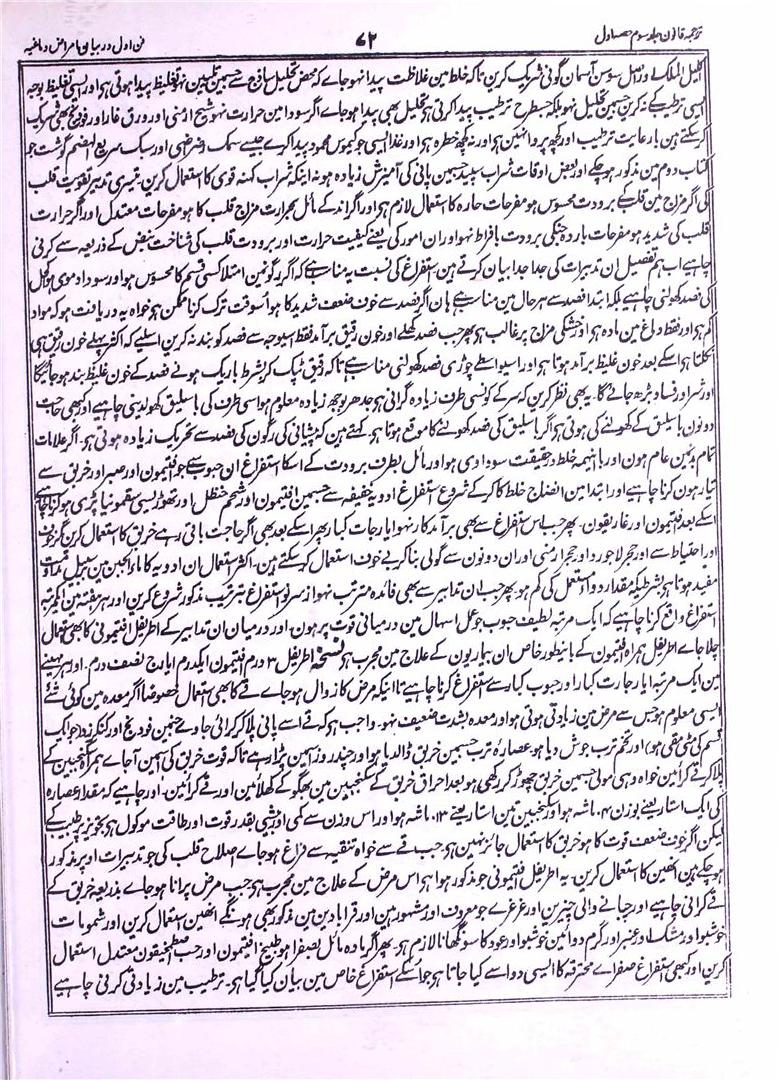 ترجمہ قانون جلد سوم حصہ اول ۷۲ فن اول در بیان امراض دماغیہ
اکلیل الملک اور اصل سوسن آسمان گونی شریک کرین تاکہ خلط مین غلاظت پیدا نہو جائے کہ محض تحلیل سے جسمین تلیین نہو تغلیظ پیدا ہوتی ہی اور ایسی تغلیظ بوجہ
ایسی ترطیب کے نہ کرین جسمین تحلیل نہو بلکہ جسطرح ترطیب پیدا کرتی ہو تحلیل بھی پیدا ہو جائے اگر سودا مین حرارت نہو شیح ارمنی اور ورق غار اور فودنج بھی شریک
کر سکتے ہین بارعایت ترطیب اور کچھ پروا نہین ہی اور نہ کچھ خطرہ ہی اور غذا ایسی جو کیموس محمود پیدا کرے جیسے سمک رضراضی اور سبک سریع الہضم گوشت جو
کتاب دوم مین مذکور ہو چکے اور بعض اوقات شراب سپید جسمین پانی کی آمیزش زیادہ ہو نہ اینکہ شراب کہنہ قوی کا استعمال کرین تیسری تدبیر تقویت قلب
کی اگر مزاج مین قلب کے برودت محسوس ہو مفرحات حارہ کا استعمال لازم ہی اور اگر اندکے مائل بحرارت مزاج قلب کا ہو مفرحات معتدل اور اگر حرارت
قلب کی شدید ہو مفرحات باردہ جنکی برودت بافراط نہو اور ان امور کی یعنے کیفیت حرارت اور برودت قلب کی شناخت نبض کے ذریعہ سے کرنی
چاہیے اب ہم تفصیل ان تدبیرات کی جدا جدا بیان کرتے ہین استفراغ کی نسبت یہ مناسب ہے کہ اگر رگونمین امتلا کسی قسم کا محسوس ہو اور سودا دموی ہو اکحل
کی فصد کھولنی چاہیے بلکہ ابتدا فصد سے ہر حال مین مناسب ہے ہان اگر فصد سے خوف ضعف شدید کا ہو اُسوقت ترک کرنا ممکن ہی خواہ یہ دریافت ہو کہ مواد
کم ہی اور فقط دماغ مین مادہ ہی اور خشکی مزاج پر غالب ہی پھر جب فصد کھلے اور خون رقیق برآمد ہو فقط اسیوجہ سے فصد کو بند نہ کرین اسلیے کہ اکثر پہلے خون رقیق ہی
نکلتا ہی اسکے بعد خون غلیظ برآمد ہوتا ہی اور اسیواسطے چوڑی فصد کھولنی مناسب ہے تاکہ رقیق ٹپک کر بشرط باریک ہونے فصد کے خون غلیظ بند ہو جائیگا
اور شر اور فساد بڑھ جائے گا۔ یہ بھی نظر کرین کہ سر کے کونسی طرف زیادہ گرانی ہی جدھر بوجھ زیادہ معلوم ہو اسی طرف کی باسلیق کھولدینی چاہیے اور کبھی حاجت
دونون باسلیق کے کھولنے کی ہوتی ہی اگر باسلیق کی فصد کھولنے کا موقع ہوتا ہی۔ کہتے ہین کہ پیشانی کی رگون کی فصد سے تحریک زیادہ ہوتی ہی۔ اگر علامات
تمام بدن مین عام ہون اور با اینہمہ خلط در حقیقت سوداوی ہو اور مائل بطرف برودت کے اسکا استفراغ ان حبوب سے جو افتیمون اور صبر اور خربق سے
تیار ہون کرنا چاہیے اور ابتدا مین انضاج خلط کا کرکے شروع استفراغ ادویہ خفیفہ سے جسمین افتیمون اور شحم حنظل اور تھوڑی سی سقمونیا پڑی ہو کرنا چاہیے
اسکے بعد افتیمون اور غاریقون۔ پھر جب اس استفراغ سے بھی برآمد کار نہو ایارجات کبار پھر اسکے بعد بھی اگر حاجت باقی رہے خربق کا استعمال کرین مگر خوف
اور احتیاط سے اور حجر لاجورد اور حجر ارمنی اور ان دونون سے گولی بنا کر بے خوف استعمال کر سکتے ہین۔ اکثر استعمال ان ادویہ کا ماء الجبن مین بسبیل تفاوت
مفید ہوتا ہی بشرطیکہ مقدار دوا مستعمل کی کم ہو۔ پھر جب ان تدابیر سے بھی فائدہ مترتب نہو از سر نو استفراغ بترتیب مذکور شروع کرین اور ہر ہفتہ مین ایکمرتبہ
استفراغ واقع کرنا چاہیے کہ ایک مرتبہ لطیف حبوب جو عمل اسہال مین درمیانی قوت پر ہون۔ اور درمیان ان تدابیر کے اطریفل افتیمونی کا بھی استعمال
چلا جائے اطریفل ہمراہ افتیمون کے بانیطور خاص ان بیماریون کے علاج مین مجرب ہی نسخہ اطریفل ۳ درم افتیمون ایکدرم ایارج نصف درم۔ اور ہر مہینے
مین ایک مرتبہ ایارجات کبار اور حبوب کبار سے استفراغ کرنا چاہیے تا اینکہ مرض کا زوال ہو جائے قے کا بھی استعمال خصوصاً اگر معدہ مین کوئی شے
ایسی معلوم ہو جس سے مرض مین زیادتی ہوتی ہو اور معدہ بشدت ضعیف نہو۔ واجب ہی کہ قے اسے پانی پلا کر کرائی جاوے جنمین فودنج اور کنکرزد (جو ایک
قسم کی شے مقئی ہی) اور تخم ترب جوش دیا ہو عصارہ ترب جسمین خربق ڈالدیا ہو اور چند روز اسمین پڑا رہے تاکہ قوت خربق کی اسمین آجاے ہمراہ سکنجبین کے
پلا کر قے کرائین خواہ وہی مولی جسمین خربق چھوڑ کر رکھی ہو بعد اخراج خربق کے سکنجبین مین بھگو کے کھلائین اور قے کرائین۔ اور چاہیے کہ مقدار عصارہ
کی ایک استار یعنے بوزن ۴۔ ماشہ ہو اور سکنجبین تین استار یعنے ۱۳۔ ماشہ ہو اور اس وزن سے کمی اور بیشی بقدر قوت اور طاقت موکول ہی بتجویز پر طبیب کے
لیکن اگر خوف ضعف قوت کا ہو خربق کا استعمال جائز نہین ہی جب قے سے خواہ تنقیہ سے فراغ ہو جاے اصلاح قلب کی جو تدبیرات اوپر مذکور
ہو چکے ہین انھین کا استعمال کرین۔ یہ اطریفل افتیمونی جو مذکور ہوا ہی اس مرض کے علاج مین مجرب ہی جب مرض پرانا ہو جاے بذریعہ خربق کے
قے کرانی چاہیے اور چبانے والی چیزین اور غرغرے جو معروف اور مشہور ہین اور قرابادین مین مذکور بھی ہونگے انھین استعمال کرین اور شمومات
خوشبو اور مشک اور عنبر اور گرم دوائین خوشبو اور عود کا سونگھانا لازم ہی۔ پھر اگر مادہ مائل بصفرا ہو طبیخ افتیمون اور حب اصطمخیقون معتدل استعمال
کرین اور کبھی استفراغ صفراے محترقہ کا ایسی دوا سے کیا جاتا ہی جو اُسکے استفراغ خاص مین بیان کیا گیا ہی۔ ترطیب مین زیادتی کرنی چاہیے